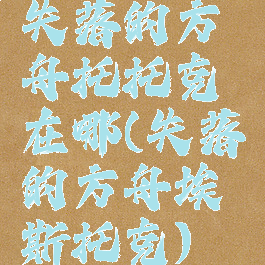 失落的方
舟托托克
在哪(失落
的方舟埃
斯托克)